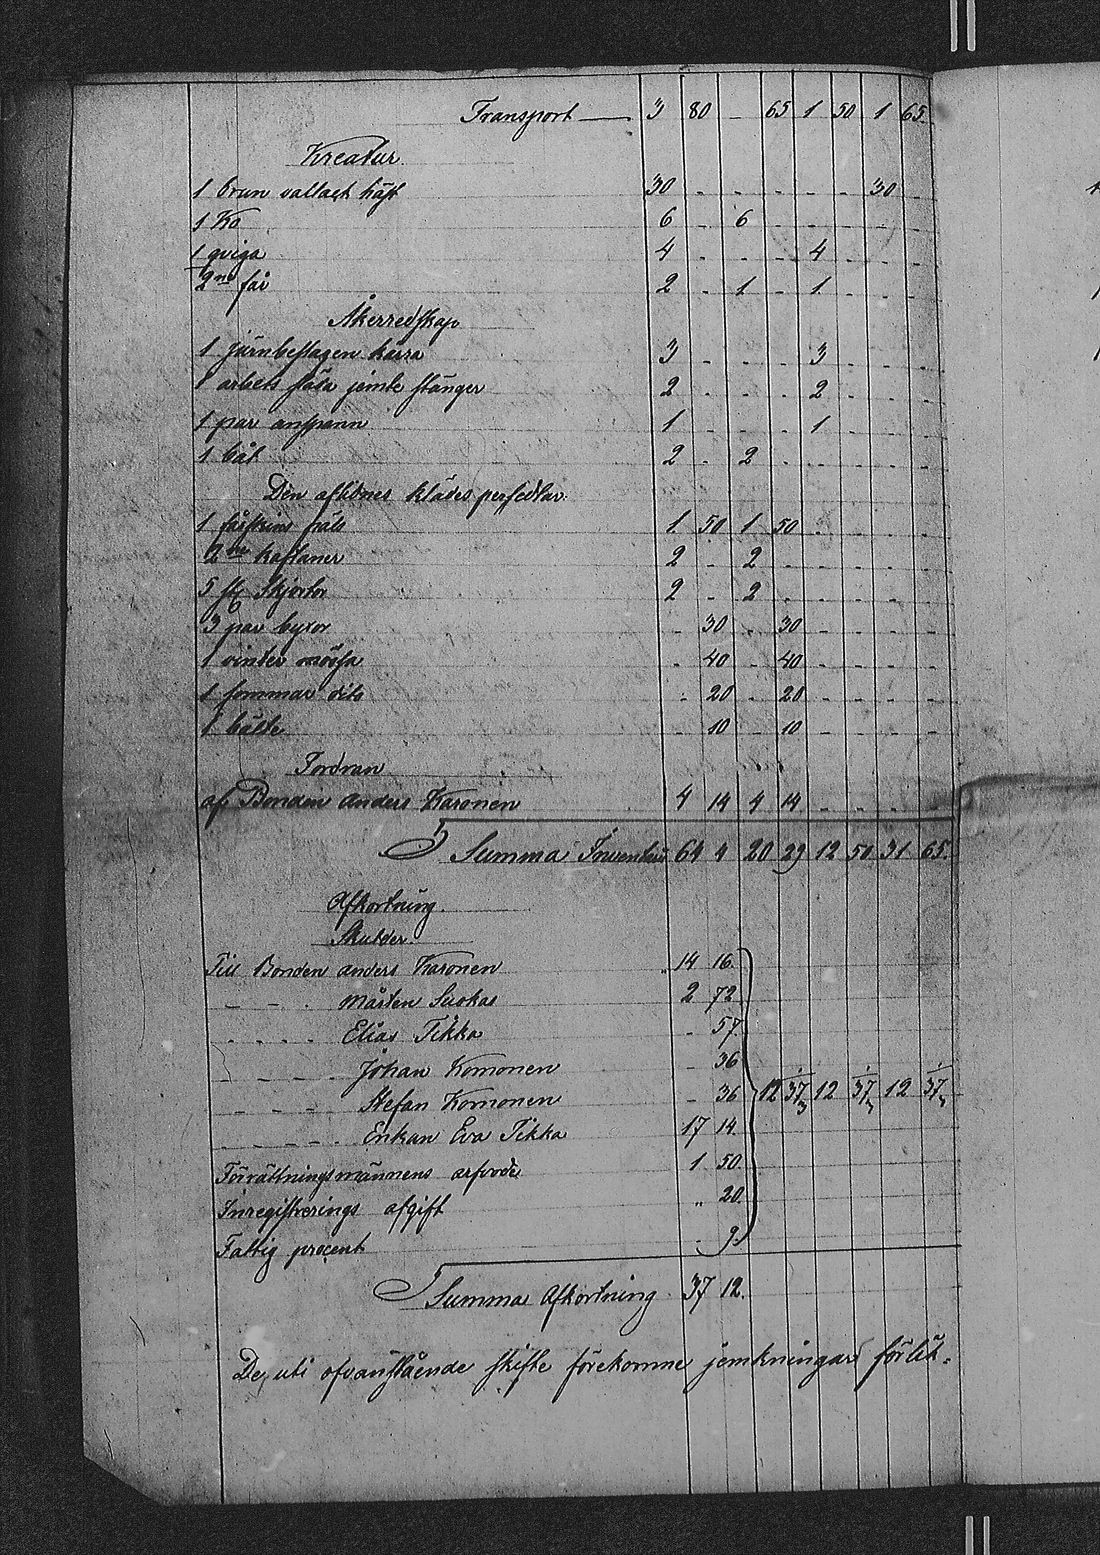 Transport — 3 80 - 65 1 50 1 65.
Kreatur.
1 brun vallack häst 30 - - - - - 30 -
1 Ko 6 - 6 - - - - -
1 qviga 4 - - - 4 - - -
2ne får 2 - 1 - 1 - - -
Åkerredskap
1 järnbeslagen kärra 3 - - - 3 - - -
1 arbets släda jemte stänger 2 - - - 2 - - -
1 par anspann 1 - - - 1 - - -
1 båt 2 - 2 - - - - -
Den aflidnes klädes persedlar.
1 fårskins päls 1 50 1 50 - - - -
2ne kaftaner 2 - 2 - - - - -
5 st Skjortor 2 - 2 - - - - -
3 par byxor - 30 - 30 - - - -
1 vinter mössa - 40 - 40 - - - -
1 sommar dito - 20 - 20 - - - -
1 bälte - 10 - 10 - - - -
Fordran
af Bonden Anders Karonen 4 14 4 14 - - - -
Summa Inventarii 64 4 20 29 12 50 31 65.
Afkortning.
Skulder.
Till Bonden Anders Karonen 14 16.
- - - Mårten Suokas 2 72
- - - - Elias Tikka - 57.
- - - - Johan Komonen - 36
- - - - Stefan Komonen - 36 12 37 1/3 12 37 1/3 12 37 1/3
- - - - Enkan Eva Tikka 17 14.
Förrättningsmännens arfvode 1 50.
Inregistrerings afgift " 20.
Fattig procent - 9.
Summa Afkortning 37 12.
De, uti ofvanstående skifte förekomne jemkningar förlik-